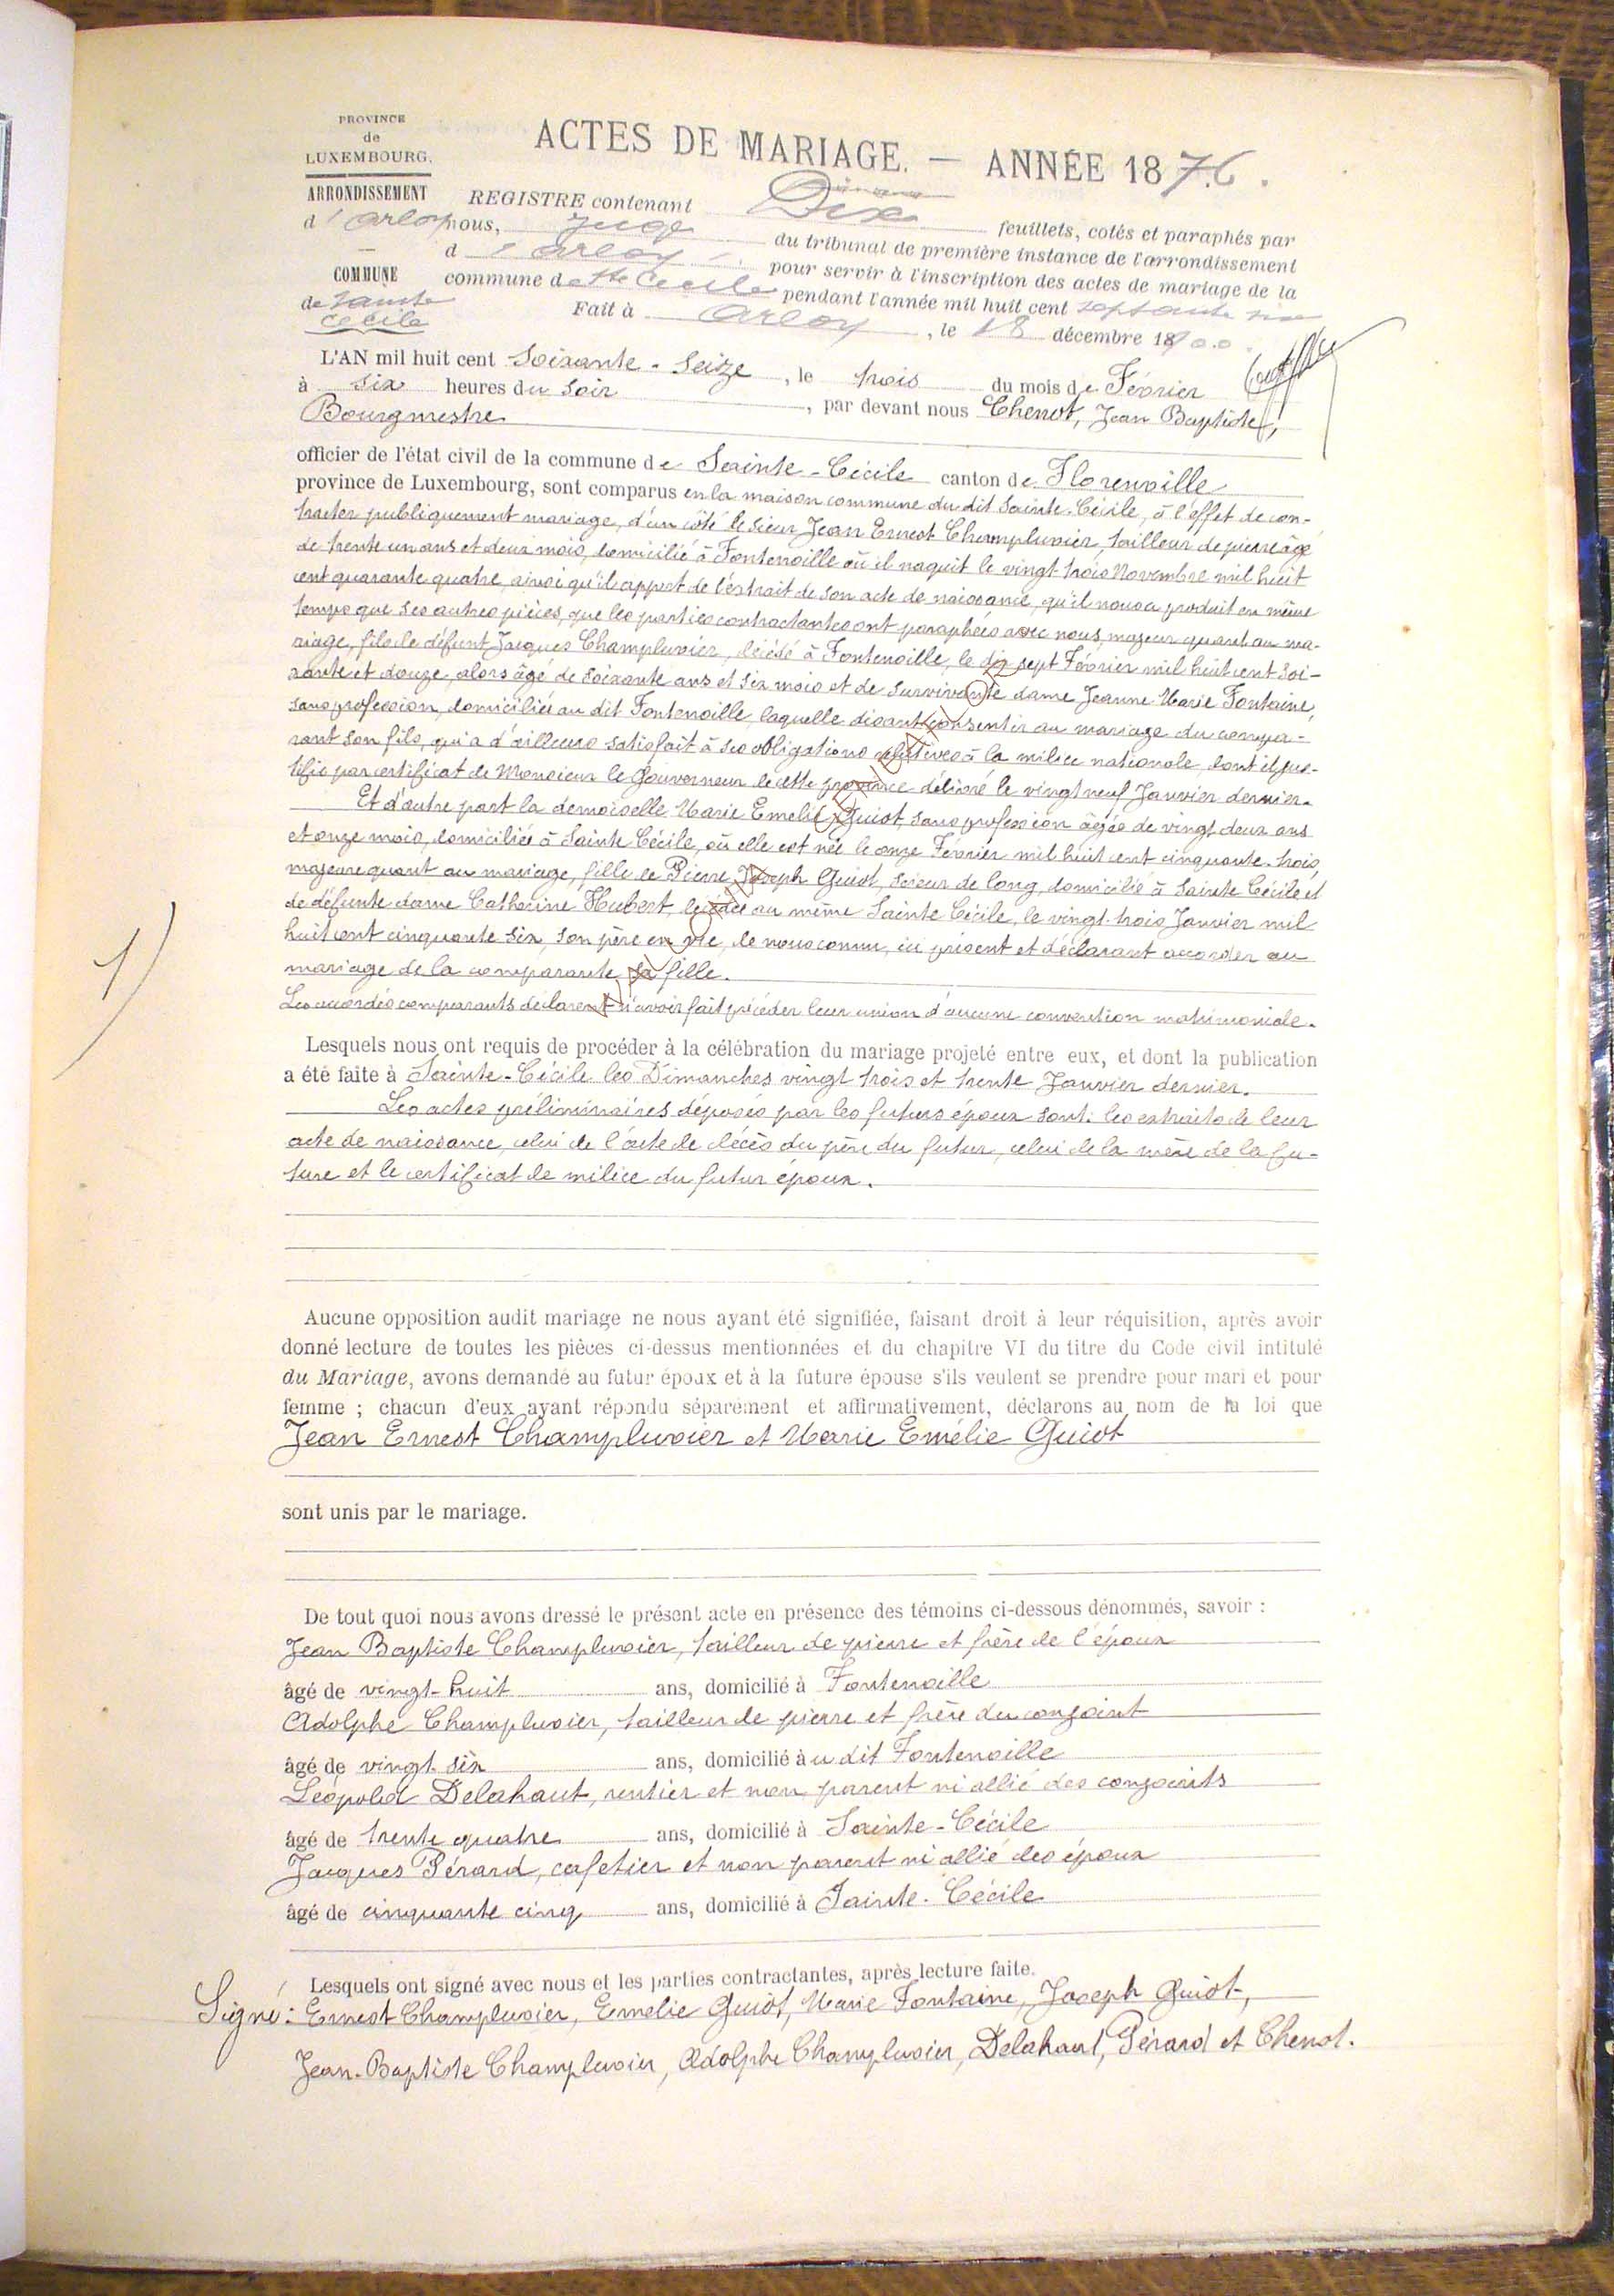 PROVINCE
de
LUXEMBOURG.
ARRONDISSEMENT
d'Arlon
COMMUNE
de Sainte
Cécile
ACTES DE MARIAGE. — ANNÉE 1876.
REGISTRE contenant Dix feuillets, cotés et paraphés par
nous, Juge du tribunal de première instance de l'arrondissement
d'Arlon pour servir à l'inscription des actes de mariage de la
commune de Ste Cecile pendant l'année mil huit cent septante six
Fait à Arlon, le 18 décembre 18
L'AN mil huit cent Soixante-Seize, le trois du mois de Février
à six heures du soir, par devant nous Chenot, Jean Baptiste,
Bourgmestre
officier de l'état civil de la commune de Sainte-Cécile canton de Florenville
province de Luxembourg, sont comparus en la maison commune du dit Sainte-Cécile, à l'effet de con-
tracter publiquement mariage, d'un côté le sieur Jean Ernest Champluvier, tailleur de pierre âgé
de trente un ans et deux mois, domicilié à Fontenoille où il naquit le vingt trois Novembre mil huit
cent quarante quatre, ainsi qu'il appert de l'extrait de son acte de naissance, qu'il nous a produit en même
temps que ses autres pièces, que les parties contractantes ont paraphées avec nous, majeur quant au ma-
riage, fils de défunt Jacques Champluvier, décédé à Fontenoille, le dix sept Février mil huit cent soi-
xante et douze, alors âgé de soixante ans et six mois et de survivante dame Jeanne Marie Fontaine,
sans profession, domiciliée au dit Fontenoille, laquelle disant consentir au mariage du compa-
rant son fils, qui a d'ailleurs satisfait à ses obligations relatives à la milice nationale, dont il jus-
tifie par certificat de Monsieur le Gouverneur de cette province délivré le vingt neuf Janvier dernier.
Et d'autre part la demoiselle Marie Emelie Guiot, sans profession âgée de vingt deux ans
et onze mois, domiciliée à Sainte Cécile, où elle est née le onze Février mil huit cent cinquante-trois,
majeure quant au mariage, fille de Pierre Joseph Guiot, scieur de long, domicilié à Sainte Cécile et
de défunte dame Catherine Hubert, décédée au même Sainte Cécile, le vingt-trois Janvier mil
huit cent cinquante six, son père en vie, de nous connu, ici présent et déclarant accorder au
mariage de la comparante sa fille.
Les accordés comparants déclarent n'avoir fait précéder leur union d'aucune convention matrimoniale.
1)
Lesquels nous ont requis de procéder à la célébration du mariage projeté entre eux, et dont la publication
a été faite à Sainte-Cécile les Dimanches vingt trois et trente Janvier dernier.
Les actes préliminaires déposés par les futurs époux sont: les extraits de leur
acte de naissance, celui de l'acte de décès du père du futur, celui de la mère de la fu-
ture et le certificat de milice du futur époux.
Aucune opposition audit mariage ne nous ayant été signifiée, faisant droit à leur réquisition, après avoir
donné lecture de toutes les pièces ci-dessus mentionnées et du chapitre VI du titre du Code civil intitulé
du Mariage, avons demandé au futur époux et à la future épouse s'ils veulent se prendre pour mari et pour
femme ; chacun d'eux ayant répondu séparément et affirmativement, déclarons au nom de la loi que
Jean Ernest Champluvier et Marie Emélie Guiot
sont unis par le mariage.
De tout quoi nous avons dressé le présent acte en présence des témoins ci-dessous dénommés, savoir :
Jean Baptiste Champluvier, tailleur de pierre et frère de l'époux
âgé de vingt-huit ans, domicilié à Fontenoille
Adolphe Champluvier, tailleur de pierre et frère du conjoint
âgé de vingt six ans, domicilié au dit Fontenoille
Léopold Delahaut, rentier et non parent ni allié des conjoints
âgé de trente quatre ans, domicilié à Sainte-Cécile
Jacques Pérard, cafetier et non parent ni allié des époux
âgé de cinquante cinq ans, domicilié à Sainte-Cécile
Lesquels ont signé avec nous et les parties contractantes, après lecture faite.
Signé: Ernest Champluvier, Emelie Guiot, Marie Fontaine, Joseph Guiot,
Jean-Baptiste Champluvier, Adolphe Champluvier, Delahaut, Pérard et Chenot.